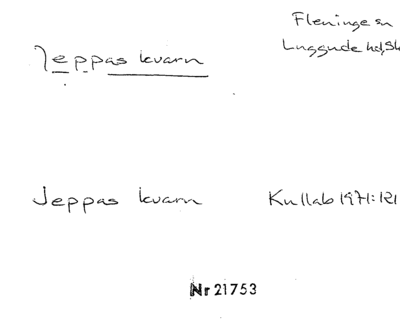 Fleninge sn
Jeppas kvarn
Luggude hd, Sk
Jeppas kvarn
Kullab 1971:121
Nr 21753